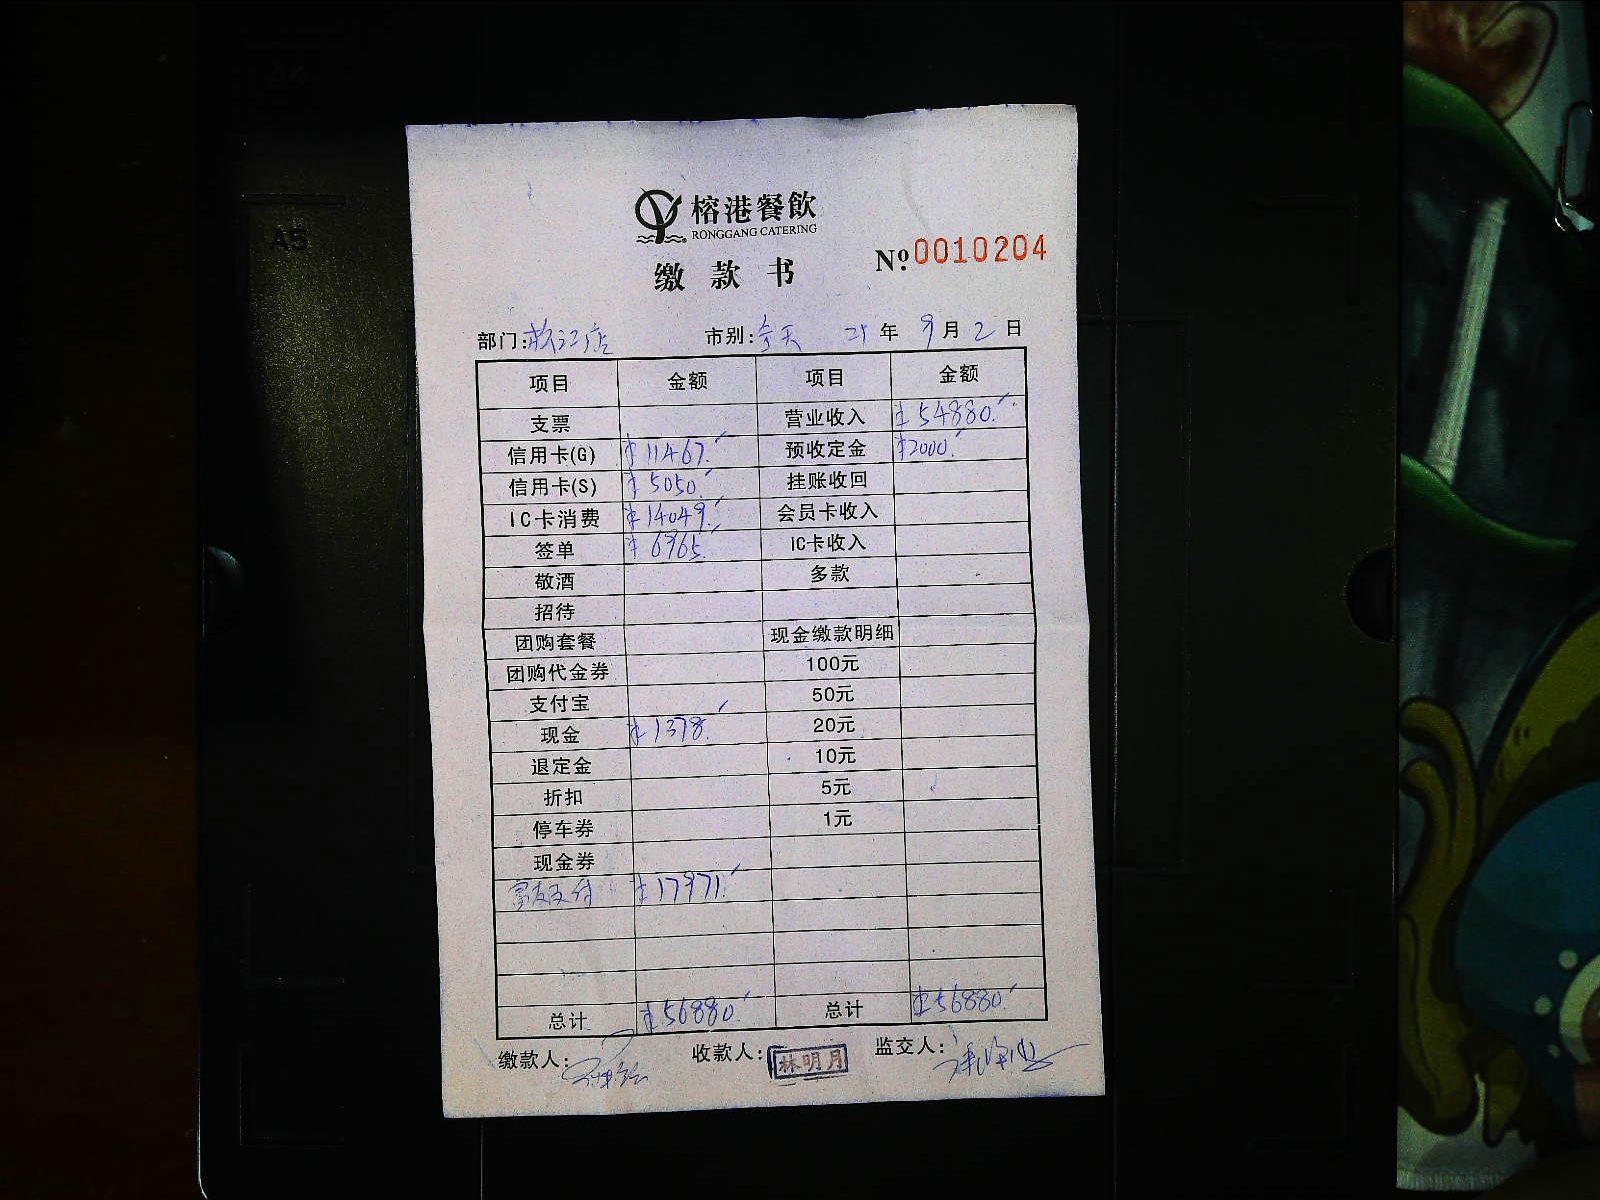 榕港餐飲
RONGGANG CATERING
缴款书 №0010204
部门:松江店 市别:全天 21年9月2日
项目 金额 项目 金额
支票 营业收入 ¥54880.
信用卡(G) ¥11467. 预收定金 ¥2000.
信用卡(S) ¥5050. 挂账收回
IC卡消费 ¥14049. 会员卡收入
签单 ¥6965. IC卡收入
敬酒 多款
招待
团购套餐 现金缴款明细
团购代金券 100元
支付宝 50元
现金 ¥1378. 20元
退定金 10元
折扣 5元
停车券 1元
现金券
富友支付 ¥17971.
总计 ¥56880. 总计 ¥56880.
缴款人: 收款人:林明月 监交人:
A5